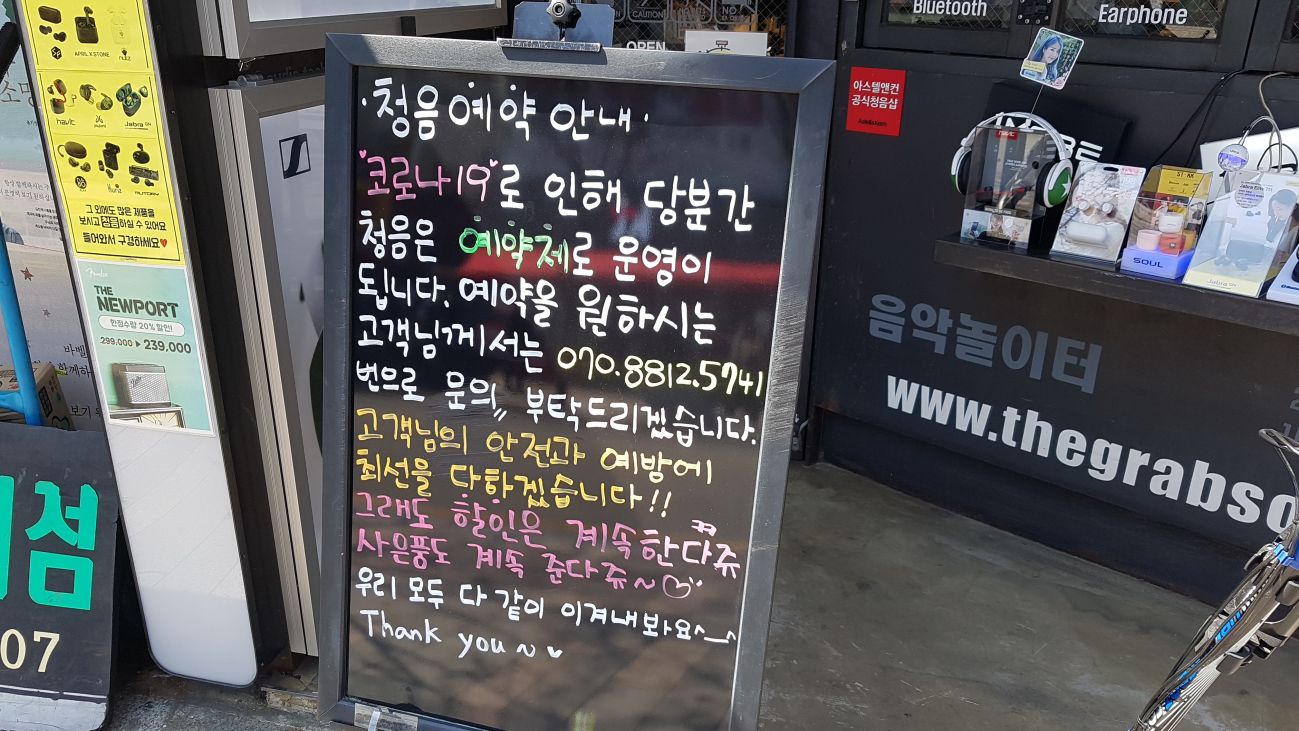 ·청음예약 안내·
코로나19로 인해 당분간
청음은 예약제로 운영이
됩니다. 예약을 원하시는
고객님께서는 070.8812.5741
번으로 문의〃 부탁드리겠습니다.
고객님의 안전과 예방에
최선을 다하겠습니다!!
그래도 할인은 계속한다쥬
사은품도 계속 준다쥬~♡
우리 모두 다 같이 이겨내봐요^_^
Thank you~♥
APRIL X STONE
havit
Jabra GN
그 외에도 많은 제품을
보시고 청음하실 수 있어요
들어와서 구경하세요♥
Fender
THE
NEWPORT
한정수량 20% 할인!
299,000 ▶ 239,000
바벨
함께하
보기
점
07
CAUTION
NO
OPEN
Bluetooth
Earphone
아스텔앤컨
공식청음샵
Astell&Kern
SOUL
Jabra
음악놀이터
www.thegrabso